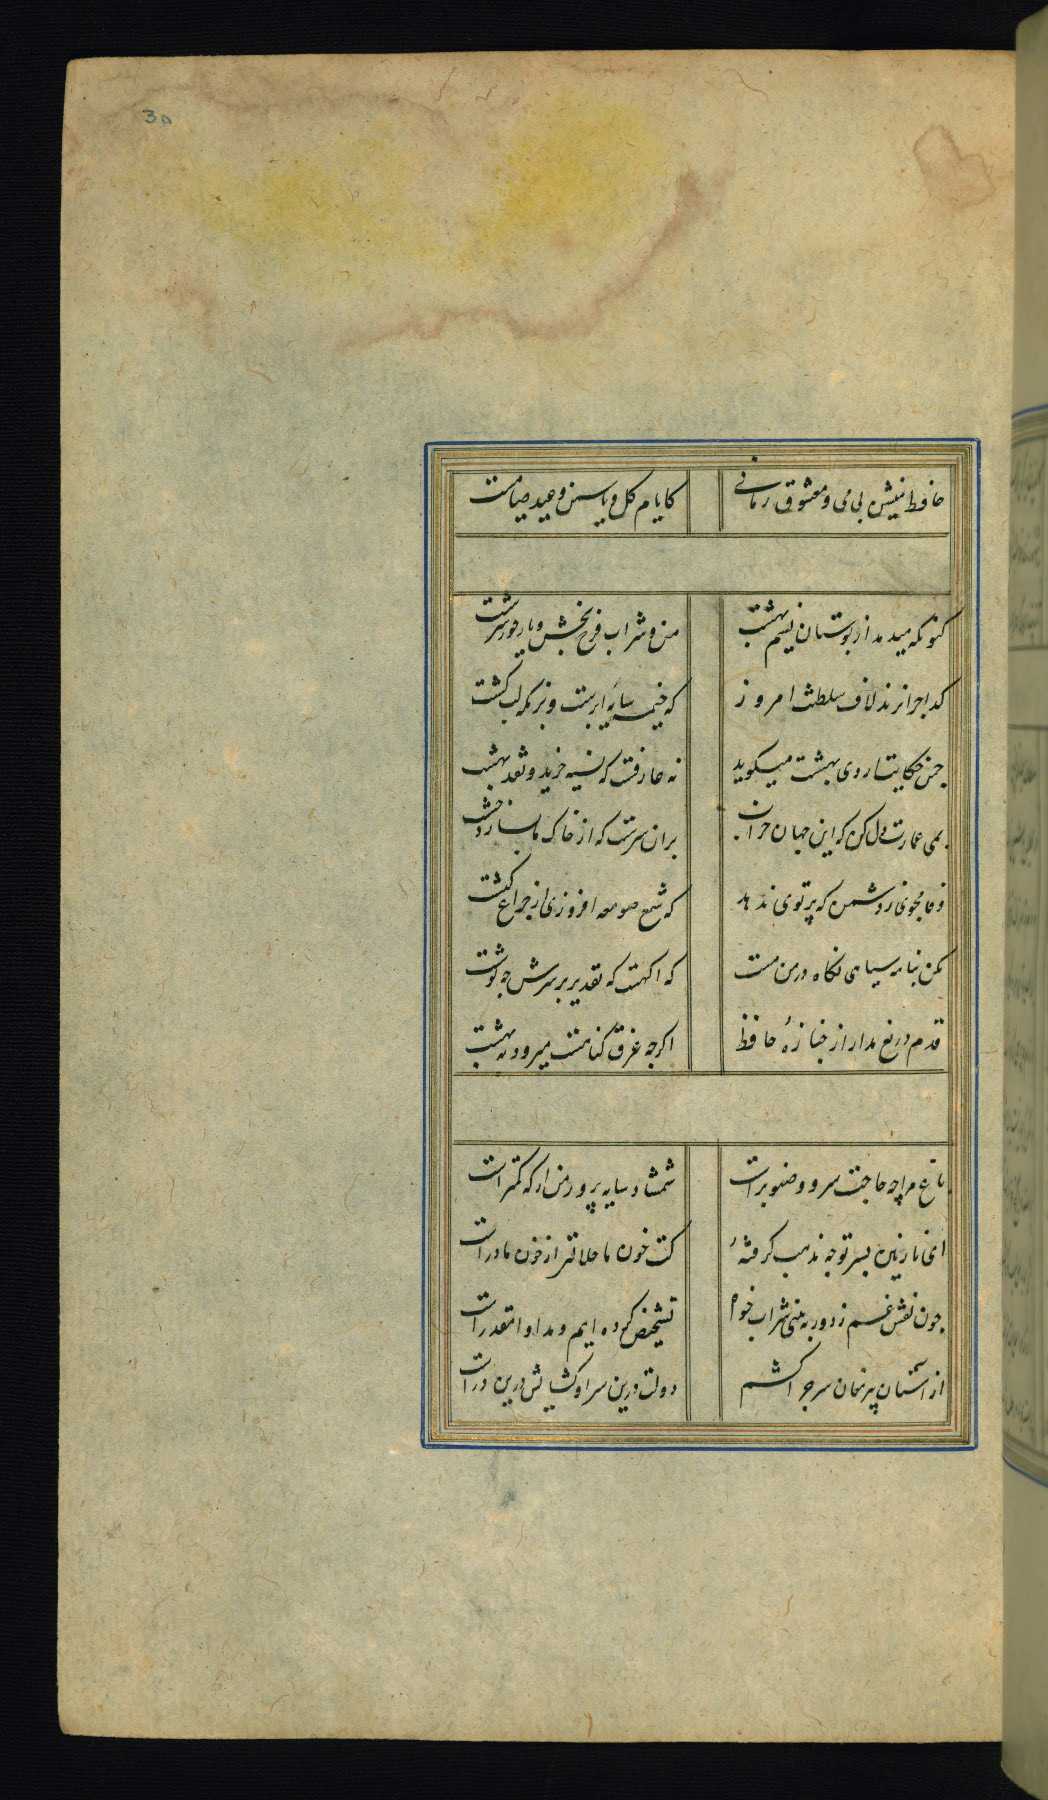 3۵
حافظ منشین بی می و معشوق زمانی کایام کل و یاسمن و عید صیامست
کنونکه میدمد از بوستان نسیم بهشت من و شراب فرح بخش و یار حورسرشت
کدا چرا نزند لاف سلطنت امروز که خیمه سایه ابرست و بزمکه لب کشت
چمن حکایت اردی بهشت میکوید نه عارفست که نسیه خرید و نقد بهشت
بمی عمارت دل کن که این جهان خراب بران سرست که از خاک ما بسازد خشت
وفا مجوی ز دشمن که پرتوی ندهد که شمع صومعه افروزی از چراغ کنشت
مکن بنامه سیاهی نکاه در من مست که اکهست که تقدیر بر سرش چه نوشت
قدم دریغ مدار از جنازهٔ حافظ اکرچه غرق کناهست میرود به بهشت
باغ مرا چه حاجت سرو و صنوبرست شمشاد سایه پرور من از که کمترست
ای نازنین پسر تو چه مذهب کرفتهٔ کت خون ما حلالتر از خون مادرست
چون نقش غم ز دور به بینی شراب خواه تشخیص کرده ایم و مداوا مقررست
از آستان پیر مغان سر چرا کشم دولت درین سرا و کشایش درین درست